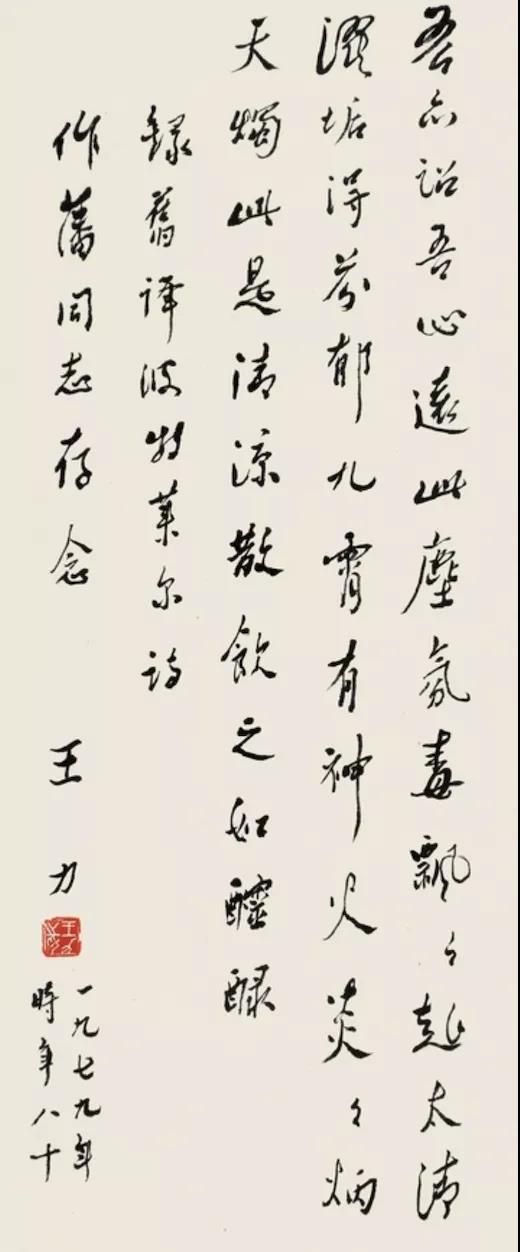 吾亦詔吾心遠此塵氛毒飄々赴太清
澄垢得芬郁九霄有神火炎々炳
天燭此是清涼散飲之如醽醁
錄舊譯波特萊尔詩
作藩同志存念 王力
一九七九年
時年八十